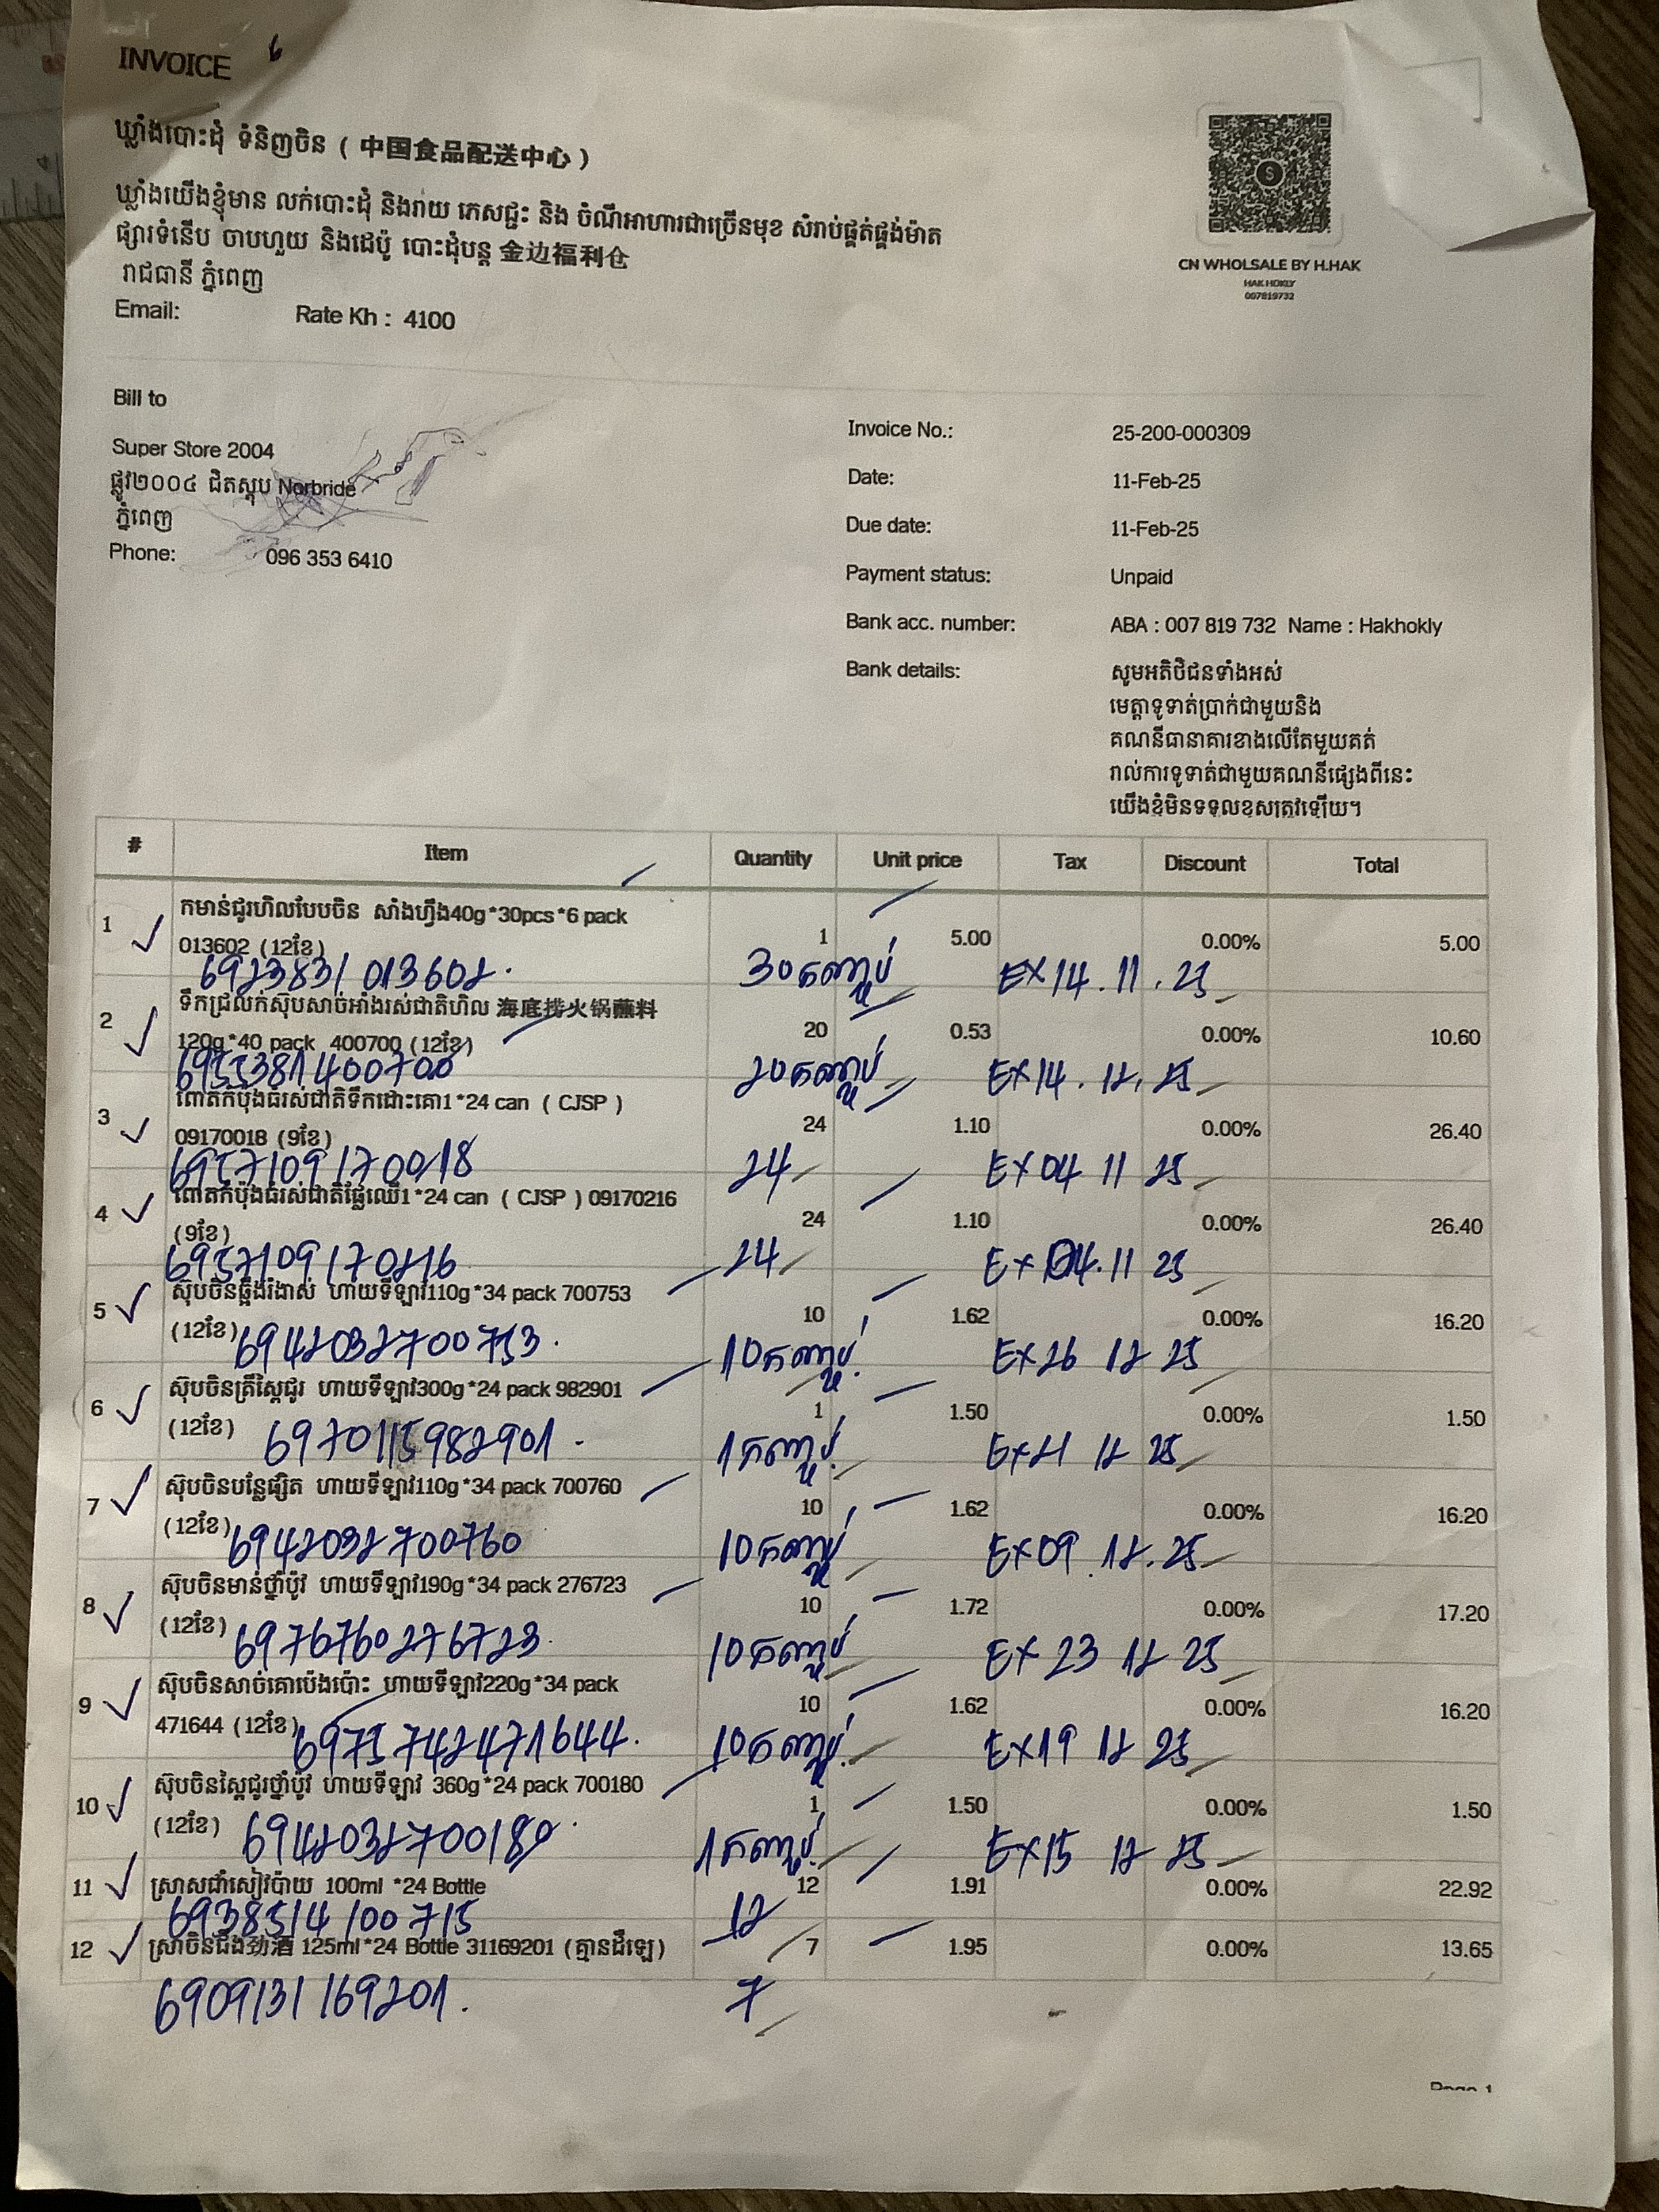 INVOICE 6
ឃ្លាំងបោះដុំ ទំនិញចិន ( 中国食品配送中心 )
ឃ្លាំងយើងខ្ញុំមាន លក់បោះដុំ និងរាយ ភេសជ្ជៈ និង ចំណីអាហារជាច្រើនមុខ សំរាប់ផ្គត់ផ្គង់ម៉ាត
ផ្សារទំនើប ចាបហួយ និងដេប៉ូ បោះដុំបន្ត 金边福利仓
រាជធានី ភ្នំពេញ
Email: Rate Kh : 4100
CN WHOLSALE BY H.HAK
HAK HOKLY
007819732
Bill to
Super Store 2004
ផ្លូវ២០០៤ ជិតស្តុប Norbride
ភ្នំពេញ
Phone: 096 353 6410
Invoice No.: 25-200-000309
Date: 11-Feb-25
Due date: 11-Feb-25
Payment status: Unpaid
Bank acc. number: ABA : 007 819 732 Name : Hakhokly
Bank details: សូមអតិថិជនទាំងអស់
មេត្តាទូទាត់ប្រាក់ជាមួយនិង
គណនីធានាគារខាងលើតែមួយគត់
រាល់ការទូទាត់ជាមួយគណនីផ្សេងពីនេះ
យើងខ្ញុំមិនទទួលខុសត្រូវឡើយ។
# Item Quantity Unit price Tax Discount Total
1 កមាន់ជូរហិលបែបចិន សាំងហ្វឹង40g*30pcs*6 pack
013602 (12ខែ) 1 5.00 0.00% 5.00
6923831 013602. 30កញ្ចប់ EX14.11.25
2 ទឹកជ្រលក់ស៊ុបសាច់អាំងរស់ជាតិហិល 海底捞火锅蘸料
120g*40 pack 400700 (12ខែ) 20 0.53 0.00% 10.60
6955381400700 20កញ្ចប់ EX14.12.25
3 ពោតកំប៉ុងធំរស់ជាតិទឹកដោះគោ1*24 can ( CJSP )
09170018 (9ខែ) 24 1.10 0.00% 26.40
6957109170018 24 EX04 11 25
4 ពោតកំប៉ុងធំរស់ជាតិផ្លែឈើ1*24 can ( CJSP ) 09170216
(9ខែ) 24 1.10 0.00% 26.40
6957109170216 24 EX04.11 25
5 ស៊ុបចិនឆ្អឹងរំងាស់ ហាយទីឡាវ110g*34 pack 700753
(12ខែ) 10 1.62 0.00% 16.20
6942032700753. 10កញ្ចប់ EX26 12 25
6 ស៊ុបចិនត្រីស្ពៃជូរ ហាយទីឡាវ300g*24 pack 982901
(12ខែ) 1 1.50 0.00% 1.50
6970115982901 . 1កញ្ចប់ EX21 12 25
7 ស៊ុបចិនបន្លែផ្សិត ហាយទីឡាវ110g*34 pack 700760
(12ខែ) 10 1.62 0.00% 16.20
6942032700760 10កញ្ចប់ EX09.12.25
8 ស៊ុបចិនមាន់ថ្នាំប៉ូវ ហាយទីឡាវ190g*34 pack 276723
(12ខែ) 10 1.72 0.00% 17.20
6976760276723. 10កញ្ចប់ EX 23 12 25
9 ស៊ុបចិនសាច់គោប៉េងប៉ោះ ហាយទីឡាវ220g*34 pack
471644 (12ខែ) 10 1.62 0.00% 16.20
6975742471644. 10កញ្ចប់ EX19 12 25
10 ស៊ុបចិនស្ពៃជូរថ្នាំប៉ូវ ហាយទីឡាវ 360g*24 pack 700180
(12ខែ) 1 1.50 0.00% 1.50
6942032700180. 1កញ្ចប់ EX15 12 25
11 ស្រាសជាំសៀវប៉ាយ 100ml *24 Bottle 12 1.91 0.00% 22.92
6938514100715 12
12 ស្រាចិនជីង劲酒 125ml*24 Bottle 31169201 (គ្មានដឺឡេ) 7 1.95 0.00% 13.65
6909131169201. 7
Page 1